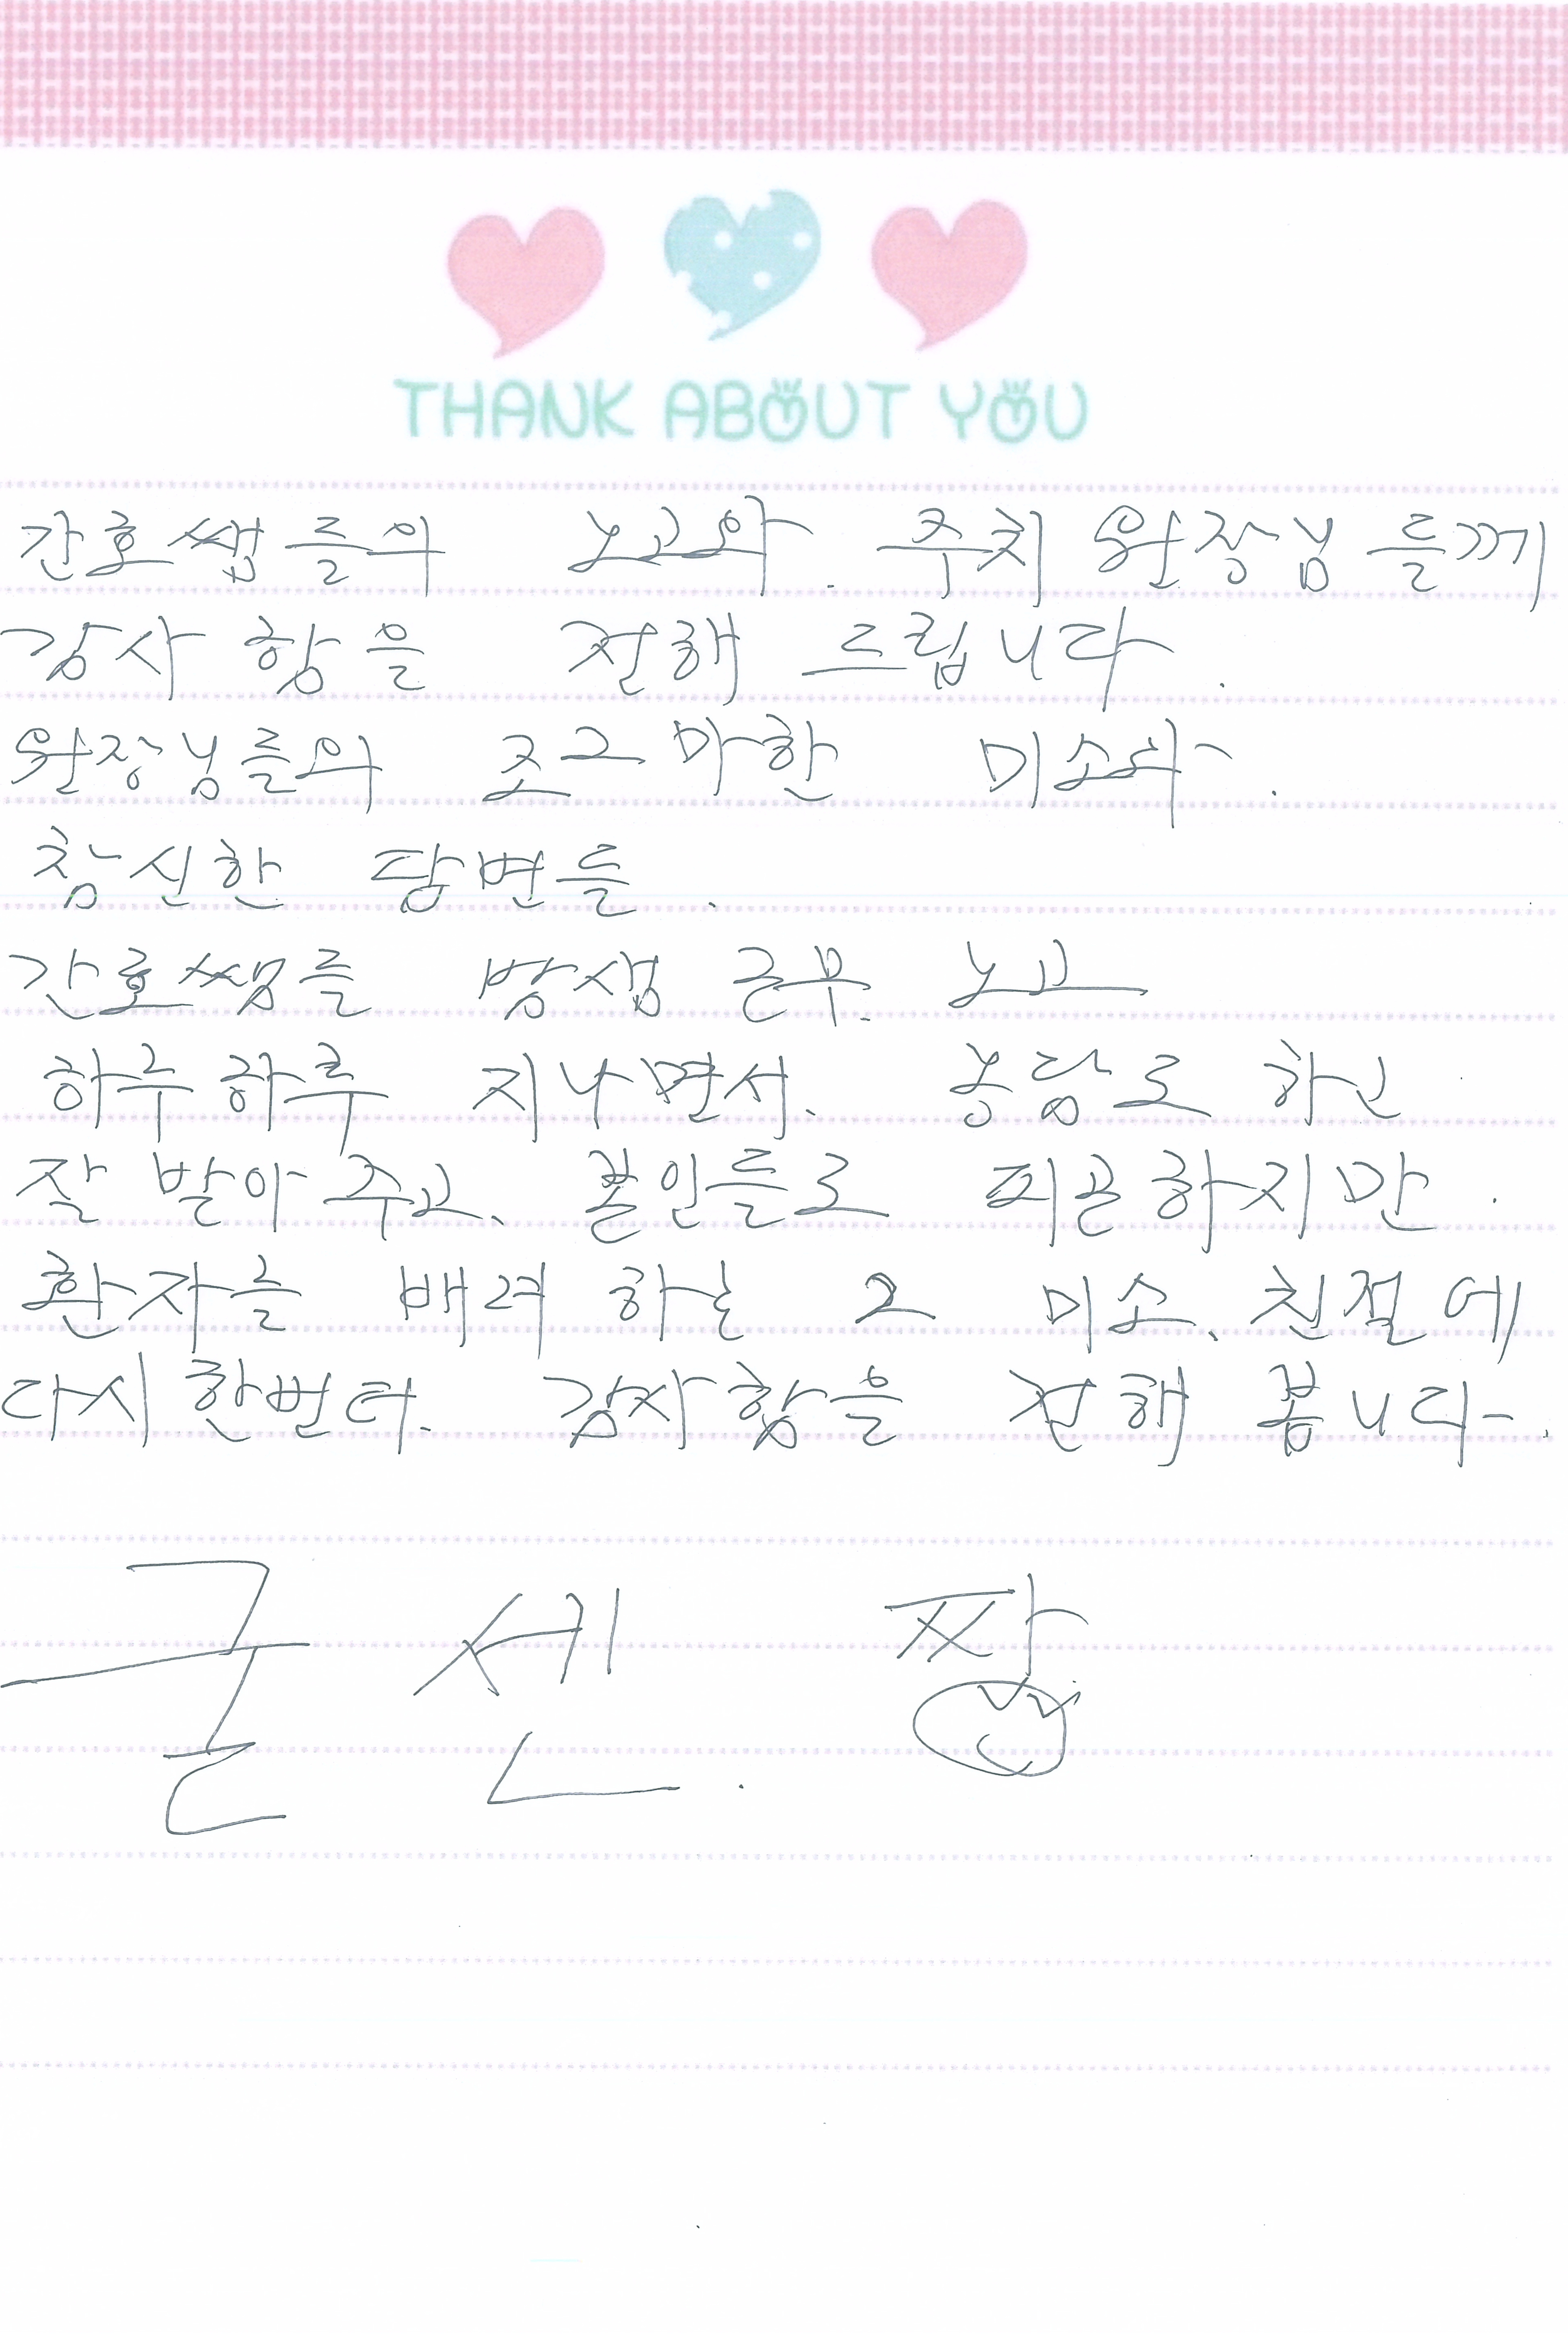 THANK ABOUT YOU
간호쌥들의 노고와. 주치 원장님들께
감사함을 전해 드립니다.
원장님들의 조그마한 미소와.
참신한 답변들.
간호쌤들 밤샘 근무. 노고
하루하루 지나면서. 농담로 하고
잘 받아주고. 본인들로 피곤하지만.
환자를 배려하는 그 미소. 친절에
다시한번더. 감사함을 전해 봅니다.
굳센. 짱